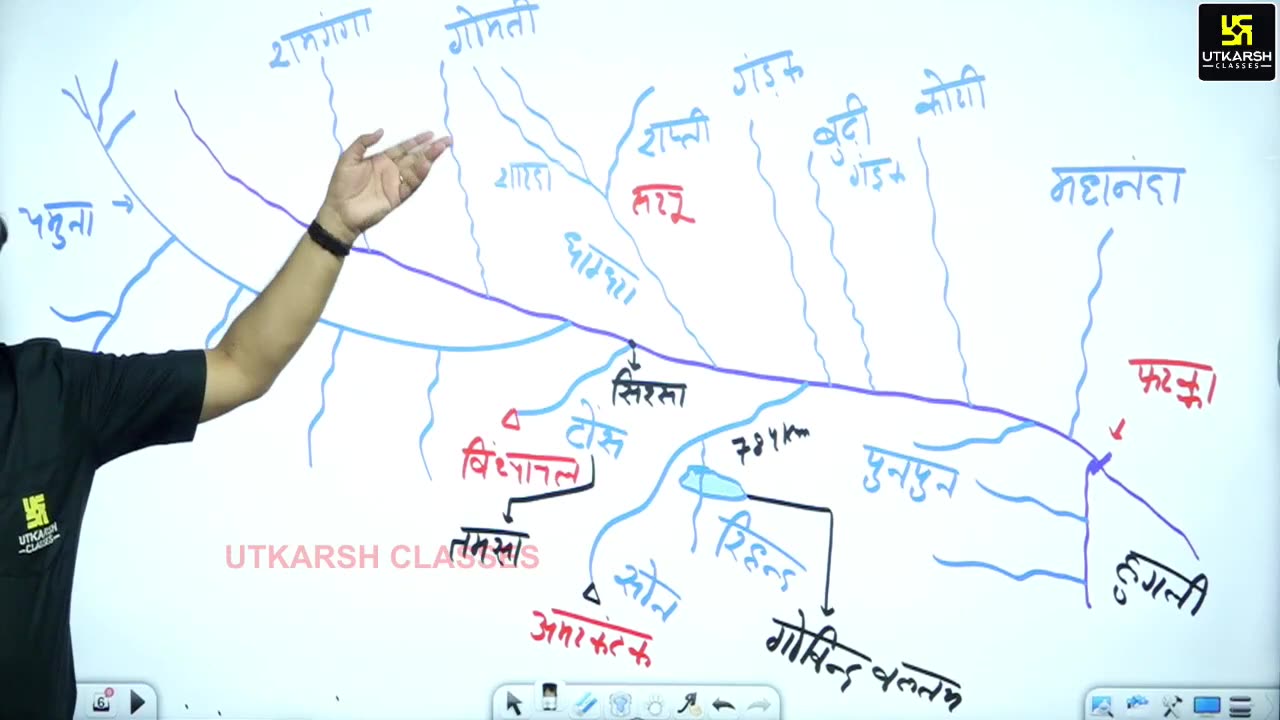 रामगंगा
गोमती
गंडक
बुढ़ी
गंडक
कोसी
महानंदा
UTKARSH
CLASSES
राप्ती
शारदा
सरयू
यमुना
घाघरा
सिरसा
फरक्का
टोंस
784 Km
विंध्याचल
पुनपुन
तमसा
रिहन्द
सोन
हुगली
अमरकंटक
गोविन्द वल्लभ
UTKARSH CLASSES
UTKARSH
CLASSES
6